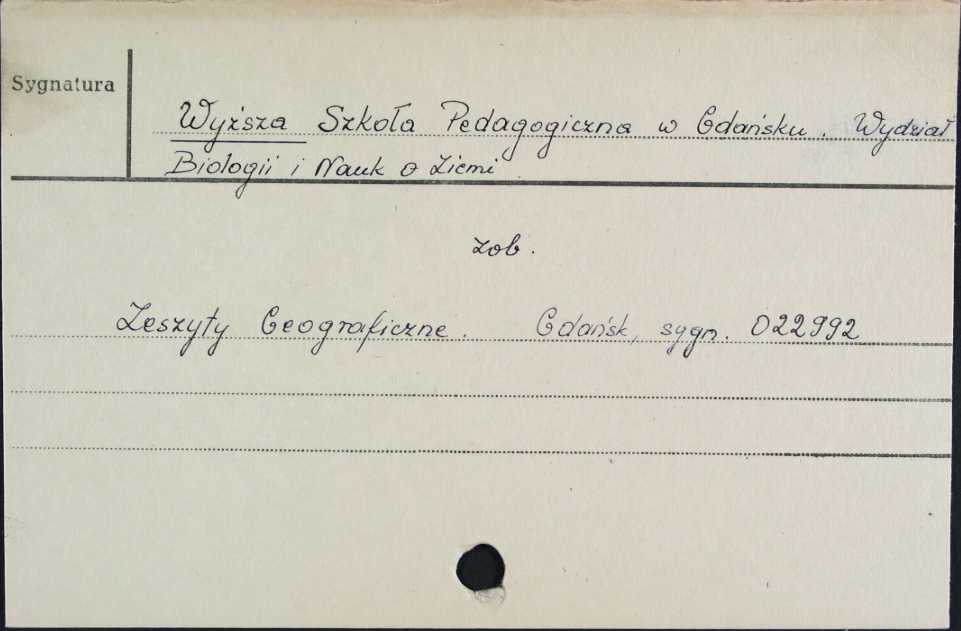 Sygnatura
Wyższa Szkoła Pedagogiczna w Gdańsku. Wydział
Biologii i Nauk o Ziemi
zob.
Zeszyty Geograficzne. Gdańsk, sygn. 022992